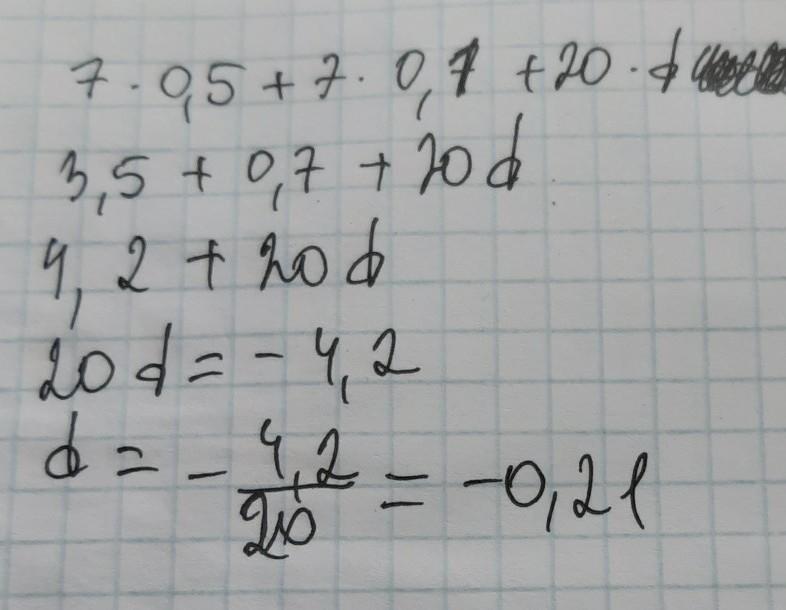 7 · 0,5 + 7 · 0,1 + 20 · d
3,5 + 0,7 + 20 d
4, 2 + 20 d
20 d = - 4, 2
d = - 4,2/20 = -0,21